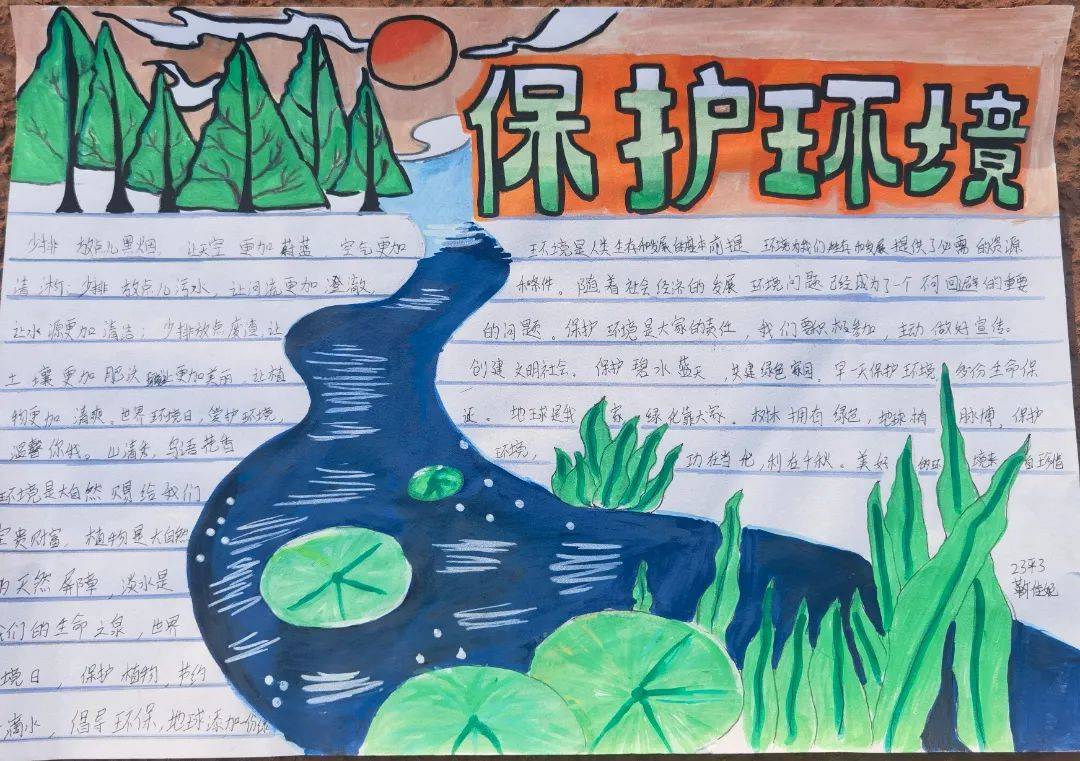 保护环境
少排 放点儿黑烟, 让天空 更加 蔚蓝 空气更加
清洲; 少排 放点儿污水, 让河流更加 澄澈,
让水 源更加 清洁; 少排放点废渣,让
土 壤 更加 肥沃 让更加美丽, 让植
物更加 清爽。世界环境日, 爱护环境,
温馨你我。山清秀, 鸟语花香
环境是大自然 赐给我们
宝贵财富, 植物是大自然
的 天然 屏障, 淡水是
我们的生命之泉, 世界
境日, 保护植物, 节约
滴水, 倡导环保,地球添加一份绿
环境是人类生存和发展的基本前提 环境为我们生存和发展 提供了必需 的资源
和条件。随着社会经济的发展 环境问题已经成为了一个不可回避的重要
的问题。保护环境是大家的责任, 我们要积极参加, 主动做好宣传。
创建文明社会。保护碧水蓝天, 共建绿色家园。早一天保护环境, 多份生命保
证。地球是我 家, 绿化靠大家。树林拥有绿色, 地球有 脉博, 保护
环境, 功在当代,利在千秋。美好 环 境来 珍惜
23平3